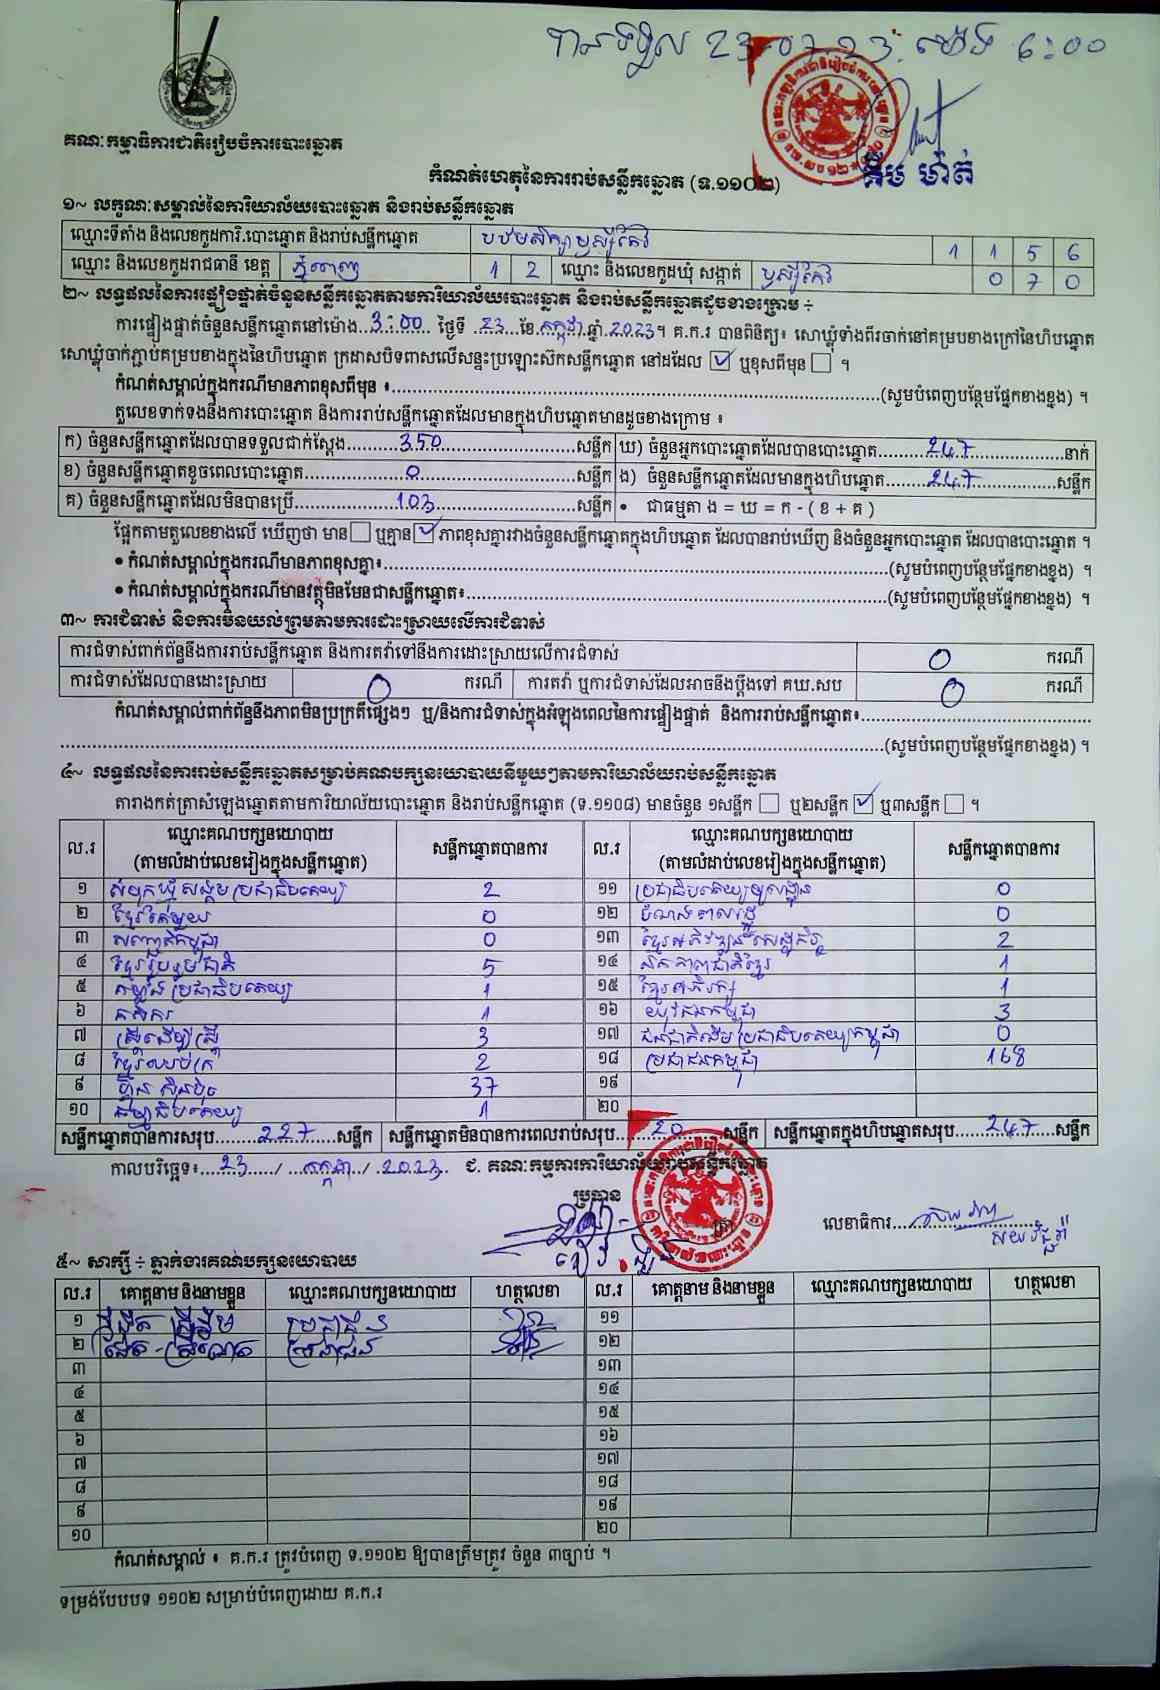 បានទទួល 23-07-23 ម៉ោង 6:00
គណៈកម្មាធិការជាតិរៀបចំការបោះឆ្នោត
គឹម ម៉ាត់
កំណត់ហេតុនៃការរាប់សន្លឹកឆ្នោត (ទ.១១០២)
១~ លក្ខណៈសម្គាល់នៃការិយាល័យបោះឆ្នោត និងរាប់សន្លឹកឆ្នោត
ឈ្មោះទីតាំង និងលេខកូដការិ.បោះឆ្នោត និងរាប់សន្លឹកឆ្នោត បឋមសិក្សាឫស្សីកែវ 1 1 5 6
ឈ្មោះ និងលេខកូដរាជធានី ខេត្ត ភ្នំពេញ 1 2 ឈ្មោះ និងលេខកូដឃុំ សង្កាត់ ឫស្សីកែវ 0 7 0
២~ លទ្ធផលនៃការផ្ទៀងផ្ទាត់ចំនួនសន្លឹកឆ្នោតតាមការិយាល័យបោះឆ្នោត និងរាប់សន្លឹកឆ្នោតដូចខាងក្រោម ÷
ការផ្ទៀងផ្ទាត់ចំនួនសន្លឹកឆ្នោតនៅម៉ោង...3:00... ថ្ងៃទី ..23..ខែ.កក្កដា.ឆ្នាំ.2023។ គ.ក.រ បានពិនិត្យ៖ សោឃ្លុំទាំងពីរចាក់នៅគម្របខាងក្រៅនៃហិបឆ្នោត
សោឃ្លុំចាក់ភ្ជាប់គម្របខាងក្នុងនៃហិបឆ្នោត ក្រដាសបិទពាសលើសន្ទះប្រឡោះស៊កសន្លឹកឆ្នោត នៅដដែល ☑ ឬខុសពីមុន ☐ ។
កំណត់សម្គាល់ក្នុងករណីមានភាពខុសពីមុន ៖...(សូមបំពេញបន្ថែមផ្នែកខាងខ្នង) ។
តួលេខទាក់ទងនឹងការបោះឆ្នោត និងការរាប់សន្លឹកឆ្នោតដែលមានក្នុងហិបឆ្នោតមានដូចខាងក្រោម ៖
ក) ចំនួនសន្លឹកឆ្នោតដែលបានទទួលជាក់ស្តែង...350...សន្លឹក ឃ) ចំនួនអ្នកបោះឆ្នោតដែលបានបោះឆ្នោត...247...នាក់
ខ) ចំនួនសន្លឹកឆ្នោតខូចពេលបោះឆ្នោត...0...សន្លឹក ង) ចំនួនសន្លឹកឆ្នោតដែលមានក្នុងហិបឆ្នោត...247...សន្លឹក
គ) ចំនួនសន្លឹកឆ្នោតដែលមិនបានប្រើ...103...សន្លឹក • ជាធម្មតា ង = ឃ = ក - ( ខ + គ )
ផ្អែកតាមតួលេខខាងលើ ឃើញថា មាន ☐ ឬគ្មាន ☑ ភាពខុសគ្នារវាងចំនួនសន្លឹកឆ្នោតក្នុងហិបឆ្នោត ដែលបានរាប់ឃើញ និងចំនួនអ្នកបោះឆ្នោត ដែលបានបោះឆ្នោត ។
• កំណត់សម្គាល់ក្នុងករណីមានភាពខុសគ្នា៖...(សូមបំពេញបន្ថែមផ្នែកខាងខ្នង) ។
• កំណត់សម្គាល់ក្នុងករណីមានវត្ថុមិនមែនជាសន្លឹកឆ្នោត៖...(សូមបំពេញបន្ថែមផ្នែកខាងខ្នង) ។
៣~ ការជំទាស់ និងការមិនយល់ព្រមតាមការដោះស្រាយលើការជំទាស់
ការជំទាស់ពាក់ព័ន្ធនឹងការរាប់សន្លឹកឆ្នោត និងការតវ៉ាទៅនឹងការដោះស្រាយលើការជំទាស់ 0 ករណី
ការជំទាស់ដែលបានដោះស្រាយ 0 ករណី ការតវ៉ា ឬការជំទាស់ដែលអាចនឹងប្តឹងទៅ គឃ.សប 0 ករណី
កំណត់សម្គាល់ពាក់ព័ន្ធនឹងភាពមិនប្រក្រតីផ្សេងៗ ឬ/និងការជំទាស់ក្នុងអំឡុងពេលនៃការផ្ទៀងផ្ទាត់ និងការរាប់សន្លឹកឆ្នោត៖...
...(សូមបំពេញបន្ថែមផ្នែកខាងខ្នង) ។
៤~ លទ្ធផលនៃការរាប់សន្លឹកឆ្នោតសម្រាប់គណបក្សនយោបាយនីមួយៗតាមការិយាល័យរាប់សន្លឹកឆ្នោត
តារាងកត់ត្រាសំឡេងឆ្នោតតាមការិយាល័យបោះឆ្នោត និងរាប់សន្លឹកឆ្នោត (ទ.១១០៨) មានចំនួន ១សន្លឹក ☐ ឬ២សន្លឹក ☑ ឬ៣សន្លឹក ☐ ។
ល.រ ឈ្មោះគណបក្សនយោបាយ (តាមលំដាប់លេខរៀងក្នុងសន្លឹកឆ្នោត) សន្លឹកឆ្នោតបានការ ល.រ ឈ្មោះគណបក្សនយោបាយ (តាមលំដាប់លេខរៀងក្នុងសន្លឹកឆ្នោត) សន្លឹកឆ្នោតបានការ
១ សំបុកឃ្មុំសង្គមប្រជាធិបតេយ្យ 2 ១១ ប្រជាធិបតេយ្យមូលដ្ឋាន 0
២ ខ្មែរតែមួយ 0 ១២ ដំណាងរាស្ត្រ 0
៣ សញ្ជាតិកម្ពុជា 0 ១៣ ខ្មែរអភិវឌ្ឍន៍សេដ្ឋកិច្ច 2
៤ ខ្មែររួបរួមជាតិ 5 ១៤ ឯកភាពជាតិខ្មែរ 1
៥ កម្លាំងប្រជាធិបតេយ្យ 1 ១៥ ខ្មែរអភិរក្ស 1
៦ កសិករ 1 ១៦ យុវជនកម្ពុជា 3
៧ ស្ត្រីដើម្បីស្ត្រី 3 ១៧ ជនជាតិដើមប្រជាធិបតេយ្យកម្ពុជា 0
៨ ខ្មែរឈប់ក្រ 2 ១៨ ប្រជាជនកម្ពុជា 168
៩ ហ្វ៊ុនស៊ិនប៉ិច 37 ១៩
១០ ធម្មាធិបតេយ្យ 1 ២០
សន្លឹកឆ្នោតបានការសរុប...227...សន្លឹក សន្លឹកឆ្នោតមិនបានការពេលរាប់សរុប...20...សន្លឹក សន្លឹកឆ្នោតក្នុងហិបឆ្នោតសរុប...247...សន្លឹក
កាលបរិច្ឆេទ៖...23.../...កក្កដា../.2023. ជ. គណៈកម្មការការិយាល័យរាប់សន្លឹកឆ្នោត
ប្រធាន
លេខាធិការ...
៥~ សាក្សី ÷ ភ្នាក់ងារគណបក្សនយោបាយ
ល.រ គោត្តនាម និងនាមខ្លួន ឈ្មោះគណបក្សនយោបាយ ហត្ថលេខា ល.រ គោត្តនាម និងនាមខ្លួន ឈ្មោះគណបក្សនយោបាយ ហត្ថលេខា
១ ១១
២ ១២
៣ ១៣
៤ ១៤
៥ ១៥
៦ ១៦
៧ ១៧
៨ ១៨
៩ ១៩
១០ ២០
កំណត់សម្គាល់ ៖ គ.ក.រ ត្រូវបំពេញ ទ.១១០២ ឱ្យបានត្រឹមត្រូវ ចំនួន ៣ច្បាប់ ។
ទម្រង់បែបបទ ១១០២ សម្រាប់បំពេញដោយ គ.ក.រ